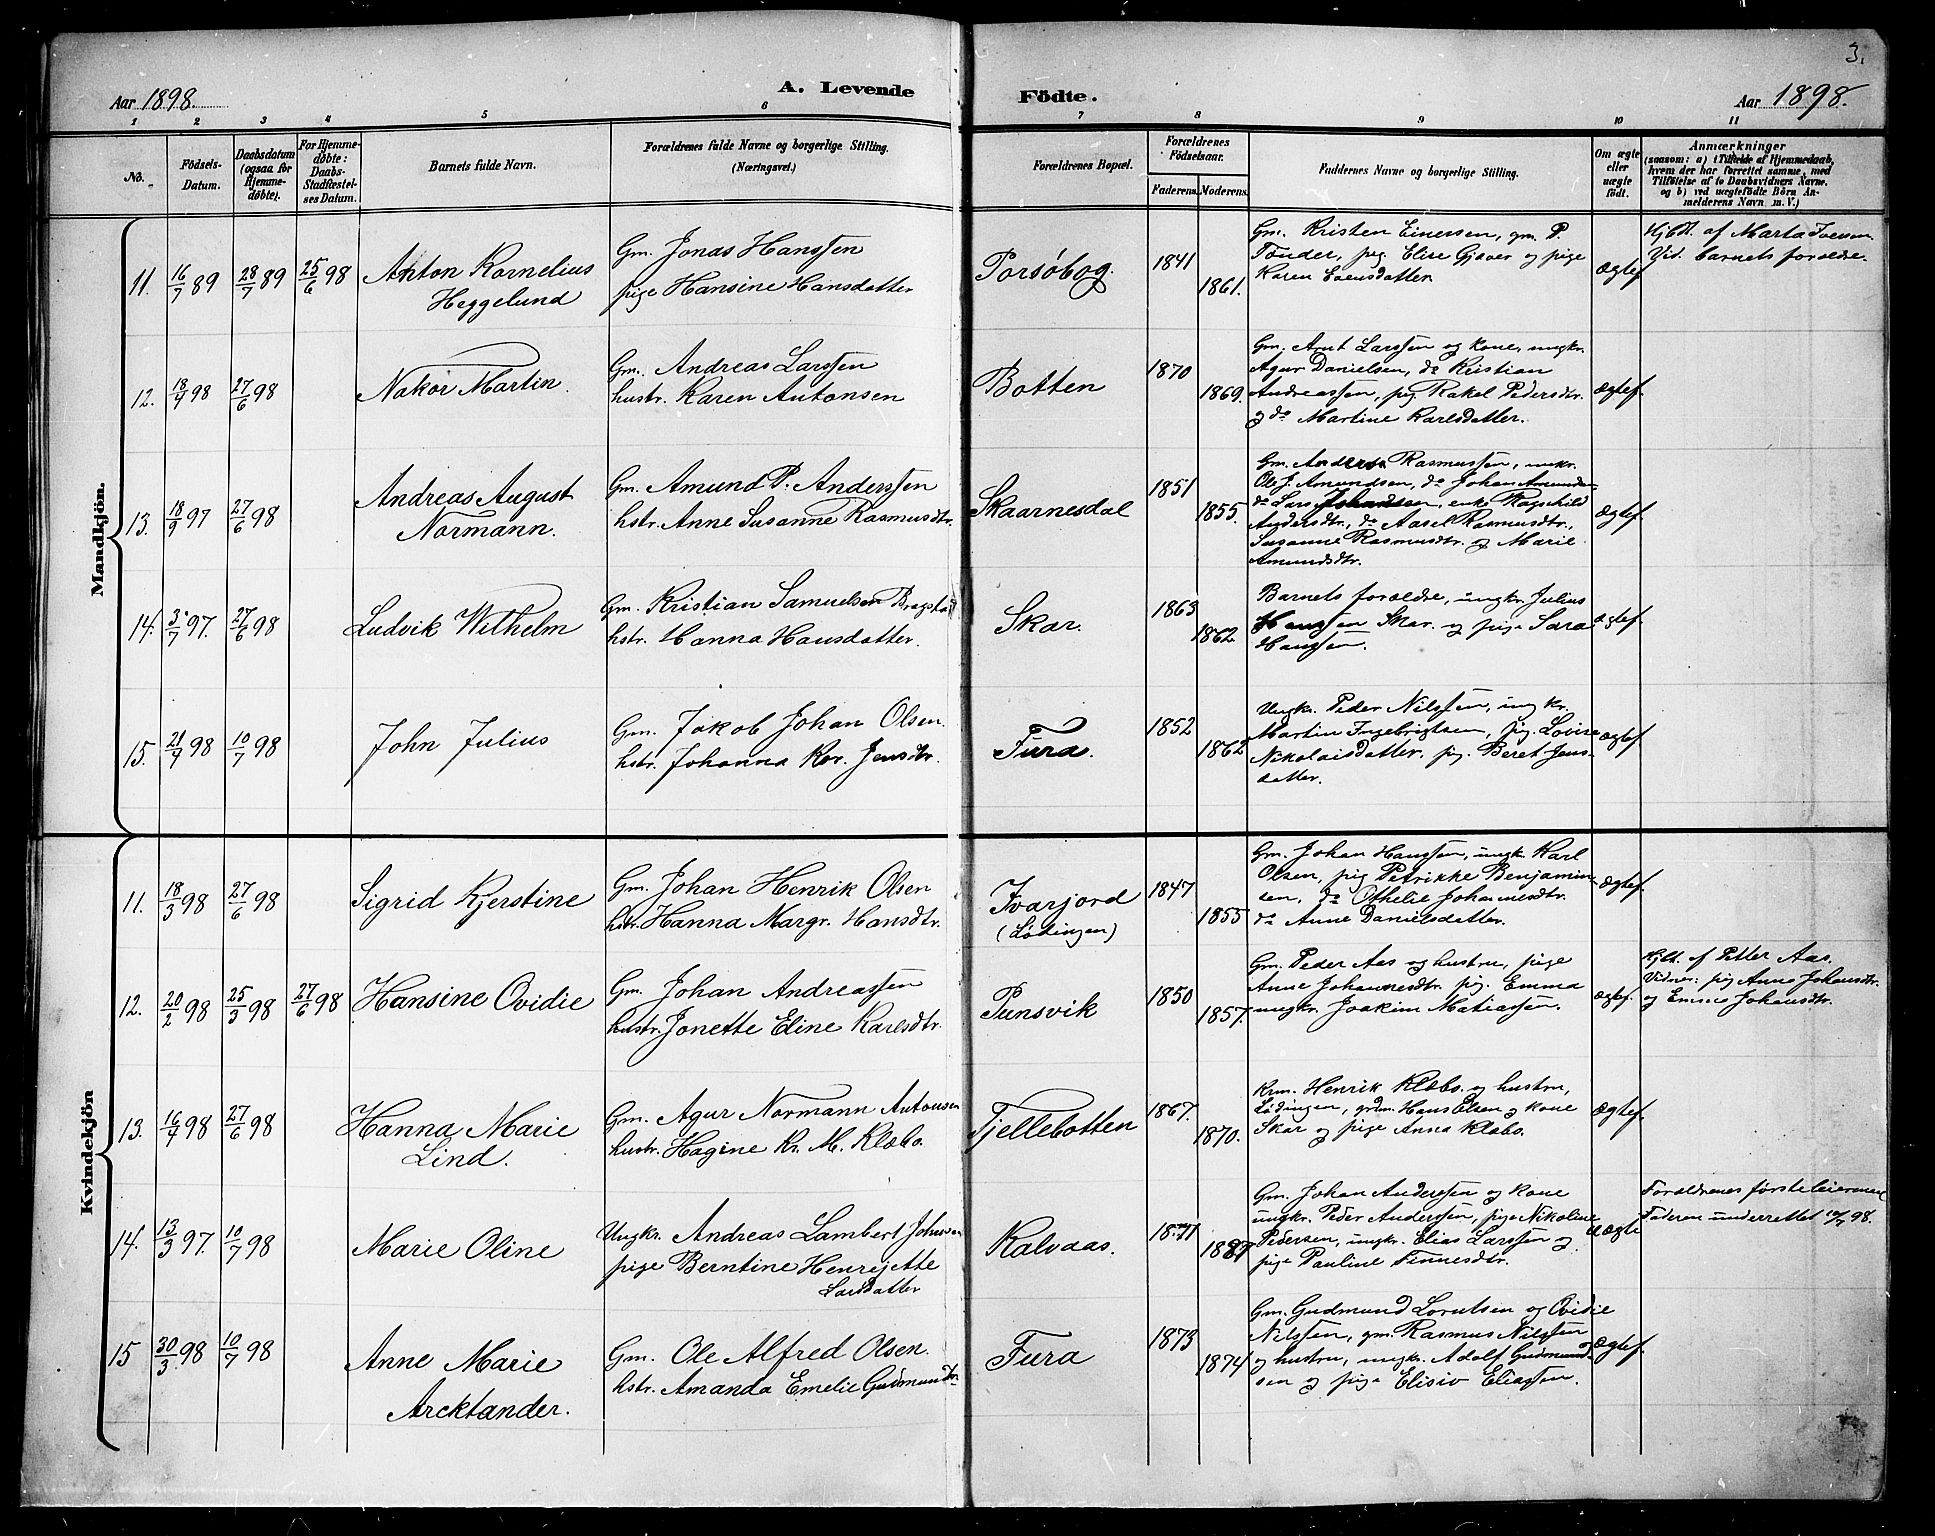 3.
Aar 1898. A. Levende Födte. Aar 1898.
1 2 3 4 5 6 7 8 9 10 11
No. Födsels-Datum. Daabsdatum (ogsaa for Hjemme-döbte). For Hjemme-döbte: Daabs-Stadfæstel-ses Datum. Barnets fulde Navn. Forældrenes fulde Navne og borgerlige Stilling. (Næringsvei.) Forældrenes Bopæl. Forældrenes Födselsaar. Faderens. Moderens. Faddernes Navne og borgerlige Stilling. Om ægte eller uægte födt. Anmærkninger
(saasom: a) i Tilfælde af Hjemmedaab, hvem der har forrettet samme, med Tilföielse af to Daabsvidners Navne. og b) ved uægtefödte Börn Anmelderens Navn m. V.)
Mandkjön.
11. 16/7 89 28/7 89 25/6 98 Anton Kornelius
Heggelund
Gm. Jonas Hanssen
pige Hansine Hansdatter
Porsöbog 1841 1861.
Gm. Kristen Einersen, gm. P.
Tönder, pig. Elise Gjæver og pige
Karen Evensdatter
ægtef.
Hjbdt. af Marta Iversen
Vid. barnets forældre.
12. 18/4 98 27/6 98 Nakor Martin.
Gm. Andreas Larssen
hustr. Karen Antonsen
Botten 1870 1869.
Gm. Arnt Larssen og kone, ungkr.
Agur Danielsen, do Kristian
Andreassen, pig. Rakel Pedersdtr.
og do Martine Karlsdatter.
ægtef.
13. 18/9 97 27/6 98 Andreas August
Normann.
Gm. Amund P. Anderssen
hstr. Anne Susanne Rasmusdtr.
Skaarnesdal 1851 1855.
Gm. Anders Rasmussen, ungkr.
Ole J. Amundsen, do Johan Amunds-
do Lars Johansen, enke Ragnhild
Andersdtr., do Aasel Rasmusdtr.,
Susanne Rasmusdtr. og Marie
Amundsdtr.
ægtef.
14. 3/7 97. 27/6 98 Ludvik Wilhelm
Gm. Kristian Samuelsen Bragstad
hstr. Hanna Hansdatter.
Skar. 1863 1862.
Barnets forældre, ungkr. Julius
Hanssen Skar. og pige Sara
Hanssen.
ægtef.
15. 21/4 98 10/7 98 John Julius
Gm. Jakob Johan Olsen.
hstr. Johanna Kor. Jensdtr.
Fura. 1852 1862
Ungkr. Peder Nilssen, ungkr.
Martin Ingebrigtsen, pig. Lovise
Nikolaisdatter. pig. Beret Jens-
datter.
ægtef.
Kvindekjön
11. 18/3 98 27/6 98 Sigrid Kjerstine
Gm. Johan Henrik Olsen
hstr. Hanna Margr. Hansdtr.
Ivarjord
(Lödingen)
1847 1855.
Gm. Johan Hanssen, ungkr. Karl
Olsen, pig Petrikke Benjamin-
sen, do Othelie Johannesdtr.
do Anne Danielsdatter.
ægtef.
12. 20/2 98 25/3 98 27/6 98 Hansine Ovidie
Gm. Johan Andreassen
hustr. Jonette Eline Karlsdtr.
Punsvik 1850 1857.
Gm. Peder Aas og hustru, pige
Anne Johannesdtr. pig. Emma
ungkr. Joakim Matiassen.
ægtef.
Hjdt. af Petter Aas.
Vidner: pig Anne Johansdtr.
og Emma Johansdtr.
13. 16/4 98 27/6 98 Hanna Marie
Lind.
Gm. Agur Normann Antonsen
hustr. Hagine Kr. M. Klæbo.
Fjellebotten 1867. 1870.
Krm. Henrik Klæbo. og hustru,
Lödingen, grdm. Hans Elsen og kone
Skar og pige Anna Klæbo.
ægtef.
14. 13/3 97. 10/7 98 Marie Oline
Ungkr. Andreas Lambert Johnsen
pige Berntine Henrijette
Larsdatter
Kalvaas.
Gm. Johan Anderssen og kone
ungkr. Peder Anderssen, pige Nikoline
Pedersen, ungkr. Elias Larssen og
pige Pauline Finnesdtr.
uægte
Forældrenes förste leiermaal
Faderen underrettet 10/7 98.
15 30/3 98 10/7 98 Anne Marie
Arcktander.
Gm. Ole Alfred Olsen.
hstr. Amanda Emelie Gudmundsdtr.
Fura 1873 1874
Gm. Gudmund Lorntsen og Ovidie
Nilssen, gm. Rasmus Nilssen
og hustru, ungkr. Adolf Gudmund-
sen og pige Elisiv Eliassen.
ægtef.